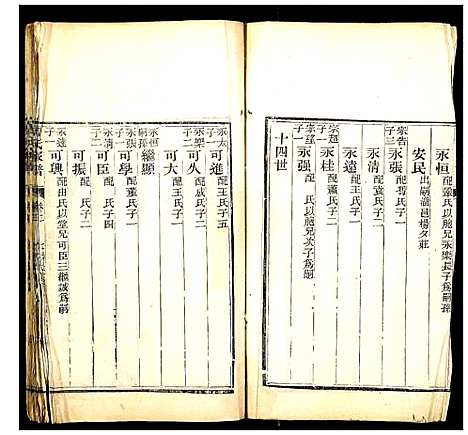 永恒配龐氏以胞兄永樂長子爲嗣孫
安民出嗣濬邑楊夕莊
宗告子三
永張配馮氏子一
永清配袁氏子二
永遠配王氏子一
宗超子一
永桂配董氏子一
宗望子一
永强配 氏以胞兄次子爲嗣
十四世
永太子一
可進配王氏子五
永樂子二
可久配成氏子二
可大配王氏子一
永恒嗣孫
繼顯
永張子一
可學配張氏子二
永清子二
可臣配李氏子三
可振配董氏子二
永遠子一
可興配田氏以堂兄可臣三繼誠爲嗣